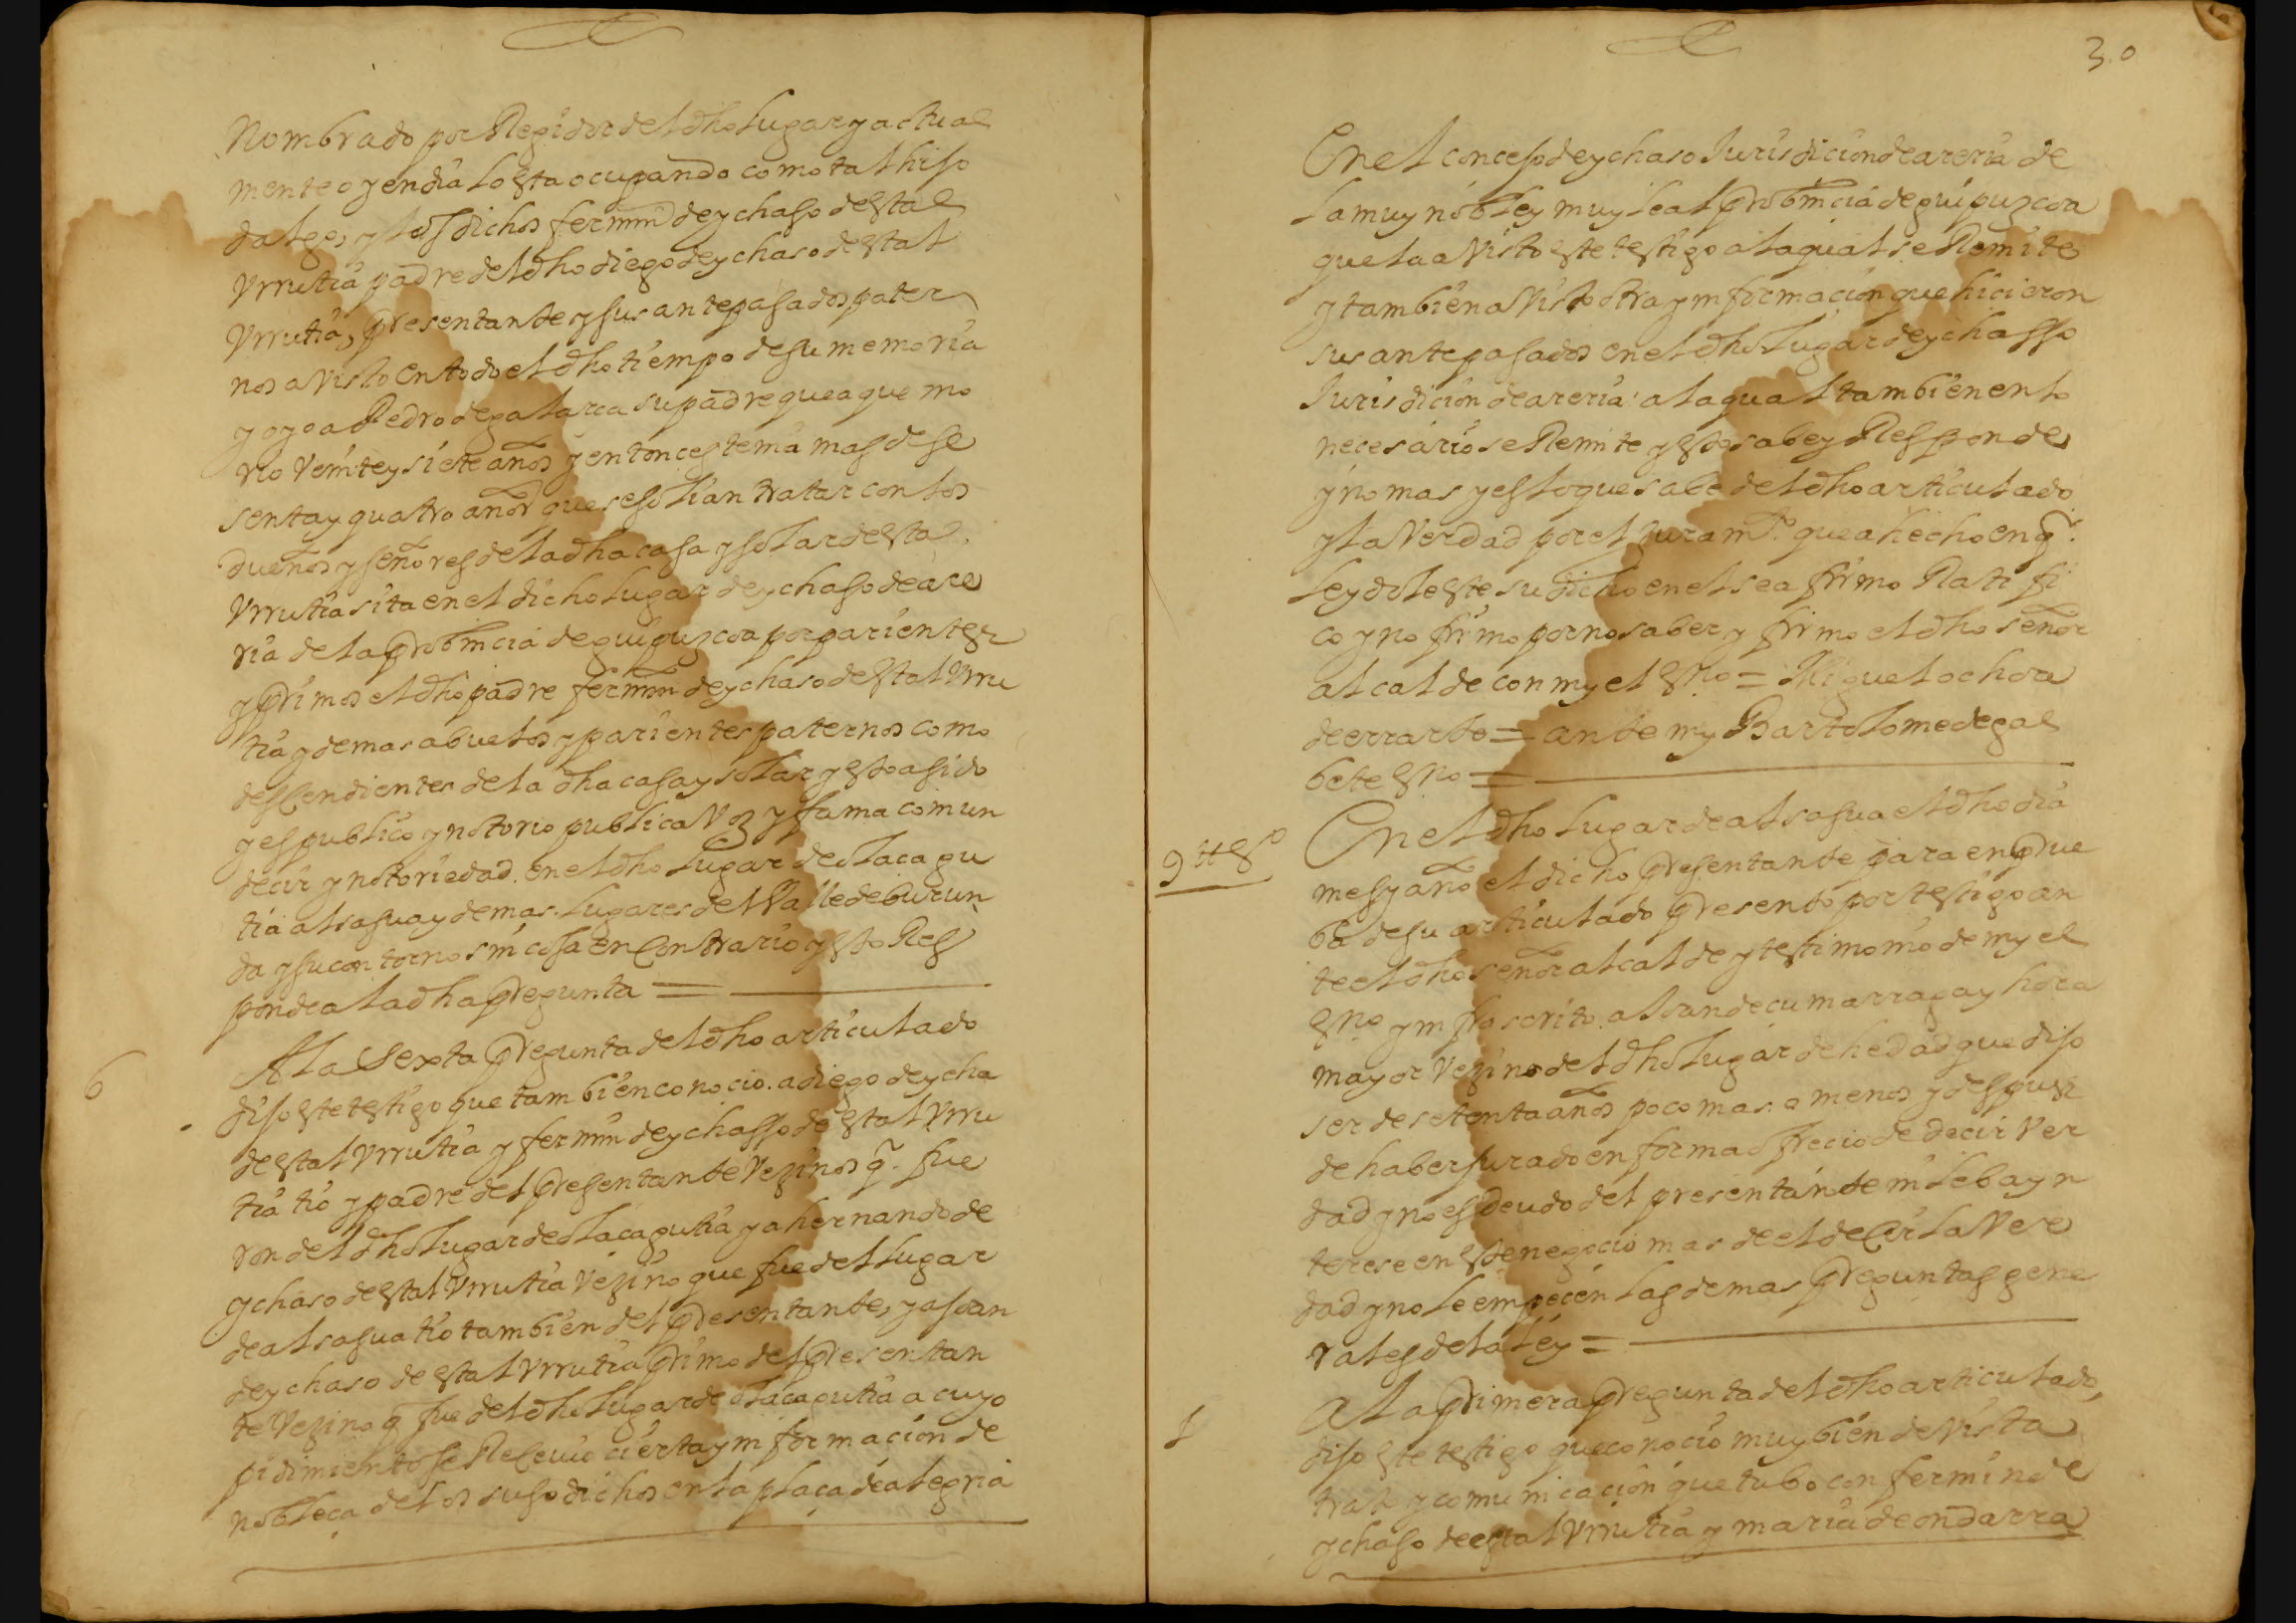 Nombrado por Regidor del dho Lugar y actual
mente oy en dia lo esta ocupando como tal hijo
dalgo, y los dichos fermin de ychaso de stal
Vrrutia padre del dho diego de ychaso de stal
Vrrutia, presentante y sus antepasados pater
nos a visto en todo el dho tiempo de su memoria
y oyo a Pedro de galarca su padre que a que mo
rio veinte y siete años y entonces tenia mas de se
senta y quatro años que se solian tratar con los
dueños y señores de la dha casa y solar de stal
Vrrutia sita en el dicho lugar de ychaso de are
ria de la probincia de guipuzcoa por parientes
y primos el dho padre fermin de ychaso de stal Vrru
tia y demas abuelos y parientes paternos como
descendientes de la dha casa y solar y esto a sido
y es publico y notorio publica voz y fama comun
decir y notoriedad en el dho Lugar de olacagu
tia alsasua y demas Lugares del Valle de burun
da y su contorno sin cosa en contrario y esto Res
ponde a la dha pregunta =
6
A la Sexta pregunta del dho articulado
dijo este testigo que tambien conocio a diego de ycha
de stal Vrrutia y fermin de ychasso de stal Vrru
tia tio y padre del presentante Vezinos q. fue
ron del dho Lugar de olacagutia y a hernando de
ychaso de stal Vrrutia Vezino que fue del lugar
de alsasua tio tambien del presentante, y a Joan
de ychaso de stal Vrrutia primo del presentan
te Vezino q fue del dho Lugar de olacagutia a cuyo
pidimiento se Recevio cierta ynformacion de
nobleça de los susodichos en la plaça de alegria
30
En el concejo de ychaso Jurisdicion de areria de
la muy noble y muy leal probincia de guipuzcoa
que la a visto este testigo a la qual se Remite
y tambien a visto otra ynformacion que hicieron
sus antepasados en el dho Lugar de ychasso
Jurisdicion de areria a la qual tambien en lo
necesario se Remite y esto sabe y Responde
y no mas y esto que sabe del dho articulado
y la Verdad por el Juramto que a hecho en q.
leydole este su dicho en el se afirmo Ratifi
co y no firmo por no saber y firmo el dho señor
alcalde con my el esno = Miguel ochoa
de errarte = ante my Bartolome de gal
bete esno =
9 tgo
En el dho Lugar de alsasua el dho dia
mes y año el dicho presentante para en prue
ba de su articulado presento por testigo an
te el dho señor alcalde y testimonio de my el
esno ynfrascrito a Juan de cumarraga y hora
mayor vezino del dho Lugar de hedad que dijo
ser de setenta años poco mas o menos y despues
de haber jurado en forma ofrecio de decir Ver
dad y no es deudo del presentante ni le ba yn
terese en este negocio mas de el decir la Ver
dad y no le empecen las demas preguntas gene
rales de la Ley =
1
A la primera pregunta del dho articulado,
dijo este testigo que conocio muy bien de vista
trato y comunicacion que tubo con fermin de
ychaso de estal Vrrutia y maria de ondarra